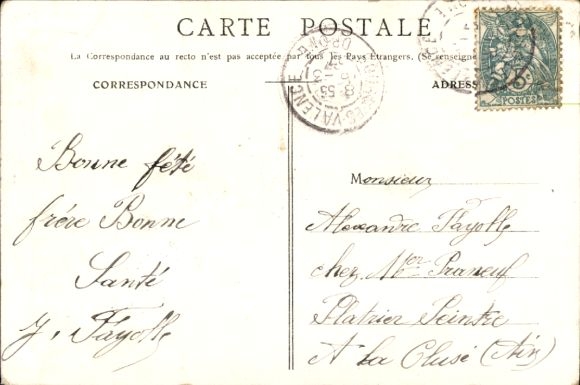 CARTE POSTALE
La Correspondance au recto n'est pas acceptée par tous les Pays Étrangers. (Se renseigne
CORRESPONDANCE
ADRESS
POSTES
VALENCE
DROME
Bonne fété
frére Bonne
Santé
J. Fayolle
Monsieur
Alexandre Fayolle
chez Mor
Platrier Peintre
A La Cluse (Ain)